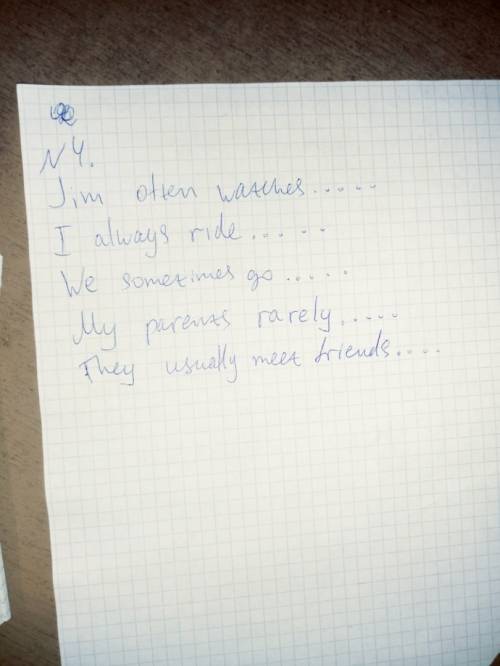 N 4.
Jim often watches.....
I always ride.....
We sometimes go.....
My parents rarely.....
They usually meet friends....